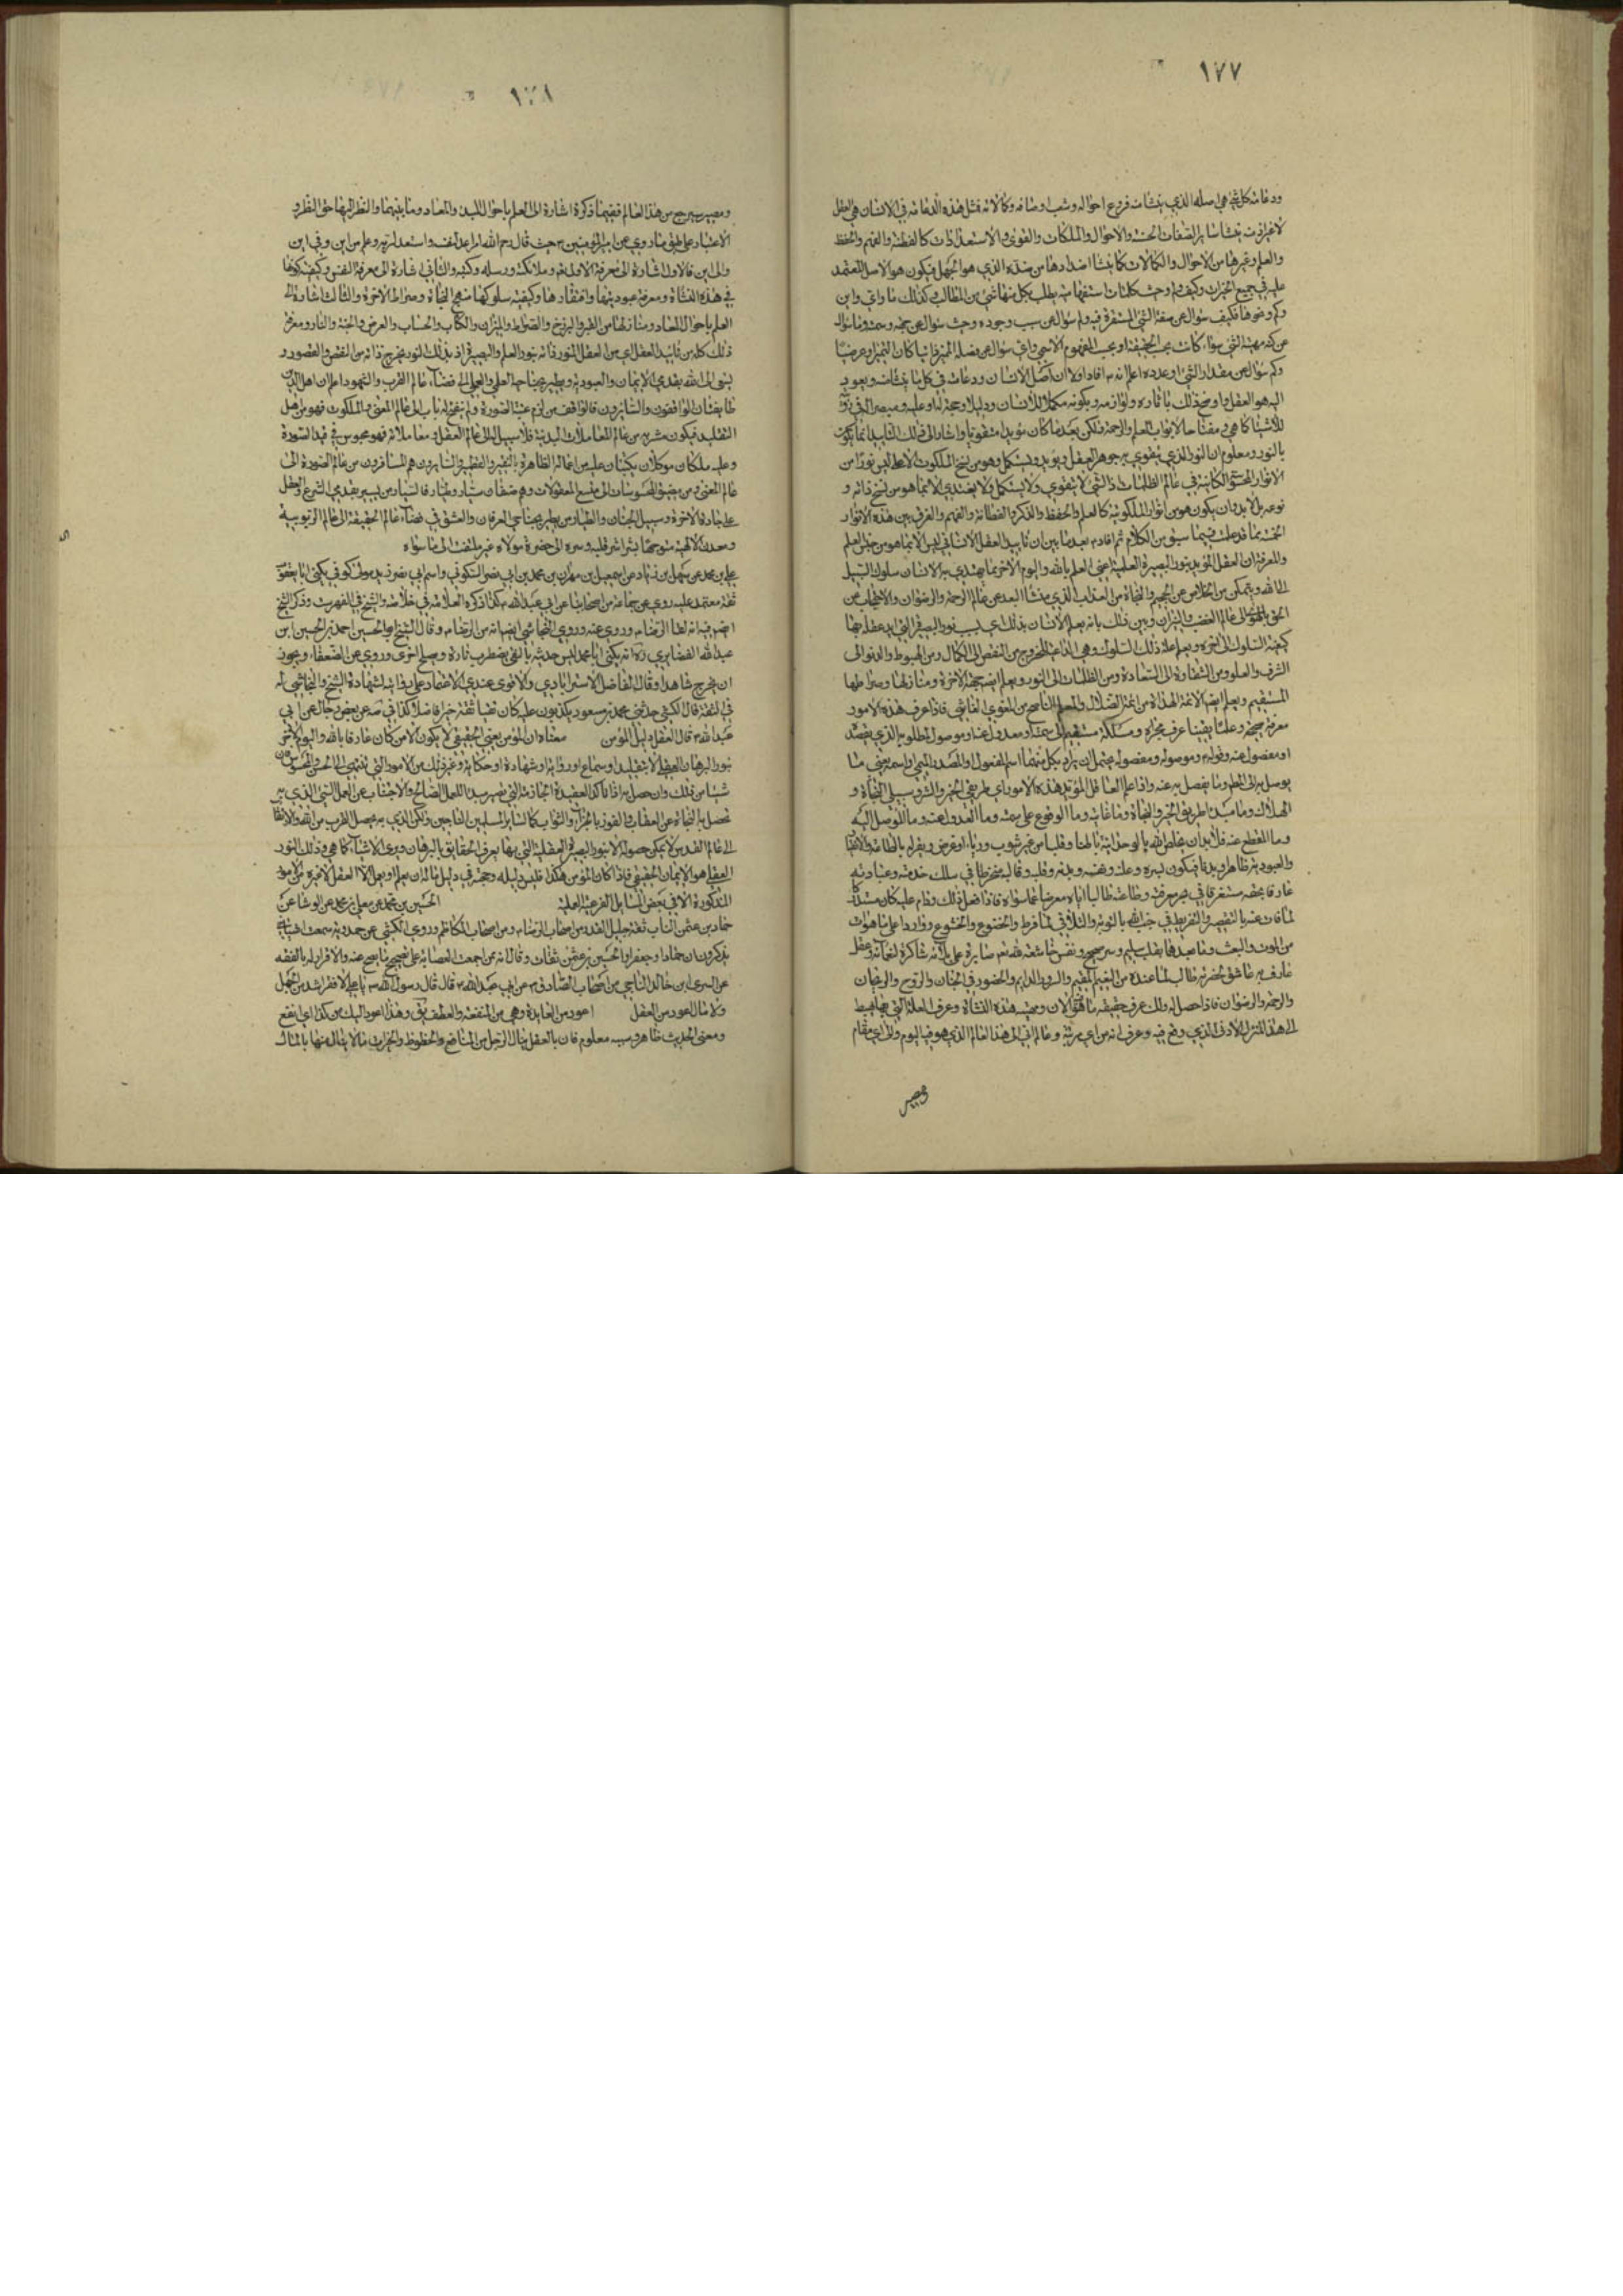 ١٧٧
ودعامة كل شيء هي اصله الذي ينشأ منه فروع احواله وشعب اوصافه وكمالاته فمثل هذه الدعامة في الانسان هي العقل
لا غير اذ منه ينشأ سائر الصفات الحسنة والاحوال والملكات والقوى والاستعدادات كالفطنة والفهم والحفظ
والعلم وغيرها من الاحوال والكمالات كما ينشأ اضدادها من ضده الذي هو الجهل فيكون هو الاصل المعتمد
عليه في جميع الخيرات وكيف ولم وحيث كلمات استفهامية يطلب بكل منها شيء من المطالب وكذلك ما واي واين
وكم ونحوها فكيف سؤال عن صفة الشيء المستقرة فيه ولم سؤال عن سبب وجوده وحيث سؤال عن جهته وسمته وما سؤال
عن كنه مهية الشيء سواء كانت بحسب الحقيقة او بحسب المفهوم الاسمي واي سؤال عن فصله المميز ذاتيا كان التميز او عرضيا
وكم سؤال عن مقدار الشيء او عدده اعلم انه ع افاد اولا ان اصل الانسان ودعامته في كل ما ينشأ منه ويعود
اليه هو العقل واوضح ذلك باثاره ولوازمه وبكونه مكملا للانسان ودليلا وحجة له او عليه ومبصرا
للاشياء كما هي ومفتاحا لابواب العلم والرحمة ولكن بعد ما كان مؤيدا متقويا واشار الى ذلك التاييد انما يكون
بالنور ومعلوم ان النور الذي يتقوى به جوهر العقل ويؤيد ويستكمل وهو من سنخ الملكوت الاعلى ليس نورا من
الانوار الحسية الكائنة في عالم الظلمات اذ الشيء لا يتقوى ولا يستكمل ولا يغتذي الا بما هو من سنخ ذاته و
نوعه بل لا بد وان يكون هو من انوار الملكوتية كالعلم والحفظ والذكر والفطانة والفهم والفرق بين هذه الانوار
الخمسة مما قد علمت فيما سبق من الكلام ثم افاد ع بعد ما بين ان تاييد العقل الانساني ليس الا بما هو من جنس العلم
والمعرفة ان العقل المؤيد بنور البصيرة العلمية اعني العلم بالله واليوم الاخر مما يهتدي به الانسان سلوك السبيل
الى الله ويتمكن من الخلاص عن الجحيم والنجاة من العذاب الذي منشأ البعد عن عالم الرحمة والرضوان والاحتجاب عن
الحق بالهوي الى عالم الغضب والنيران وبين ذلك بانه يعلم الانسان بذلك اي بسبب نور البصيرة التي ايد عقله بها
كيفية السلوك الى اخره ويعلم علة ذلك السلوك وهي الداعية للخروج من النقص الى الكمال ومن الهبوط والدنو الى
الشرف والعلو ومن الشقاوة الى السعادة ومن الظلمات الى النور ويعلم ايضا جهة الاخرة ومنازلها وصراطها
المستقيم ويعلم ايضا الائمة الهداة من ائمة الضلال والمعلم الناصح من المغوي الغاش فاذا عرف هذه الامور
معرفة صحيحة وعلما يقينا عرف مجراه ومسلكه مستقيما الى سمته او معدولا عنه وموصول مطلوبه الذي يقصد
او مفصول عنه وقوله ع وموصوله ومفصوله يحتمل ان يراد بكل منهما اسم المفعول او المصدر الميمي او اسم بمعنى ما
يوصل به الى الحق وما يفصل به عنه واذا علم العاقل المؤيد هذه الامور اي طريقي الخير والشر وسبيلي النجاة و
الهلاك وما مبدأ طريق الخير والنجاة وما غايته وما الوقوع على سمته وما العدول عنه وما الموصل اليه
وما المنقطع عنه فلا بد ان يخلص لله بالوحدانية باطنا وقلبا من غير شوب ورياء او غرض ويقر له بالطاعة والانقياد
والعبودية ظاهرا وبدنا فيكون لبسره وعلنه ونفسه وبدنه وقلبه وقالبه منخرطا في سلك خدمته وعبادته
عارفا بحقه مستغرقا في بحر معرفته وطاعته طالبا اياه معرضا عما سواه فاذا فعل ذلك ودام عليه كان مستدركا
لما فات عنه بالتقصير والتفريط في جنب الله بالتوبة والتلافي لما فرط والخضوع والخشوع وواردا على ما هو ات
من الموت والبعث وما بعدهما بقلب سليم وسر صحيح ونفس خاشعة لله صابرة على بلائه شاكرة لنعمائه وعقل
عارف به عاشق لحضرته طالب لما عنده من النعيم المقيم والسرور الدائم والحضور في الجنان والروح والريحان
والرحمة والرضوان فاذا حصل له ذلك عرف حقيقة ما هو الان فيه ومهية هذه النشأة وعرف العلة التي بها هبط
الى هذا المنزل الادنى الذي وقع فيه وعرف انه من اي مرتبة وعالم اتى الى هذا العالم الذي هو فيه اليوم والى اي مقام
ومصير
١٧٨
ومصير سيرجع من هذا العالم ففيما ذكره اشارة الى العلم باحوال المبدء والمعاد وما بينهما والنظر اليها حق النظر و
الاعتبار على طبق ما روي عن امير المؤمنين ع حيث قال رحم الله امرء اعد لنفسه واستعد لرمسه وعلم من اين وفي اين
والى اين فالاول اشارة الى معرفة الاول تعالى وملائكته ورسله وكتبه والثاني اشارة الى معرفة النفس وكيفية كونها
في هذه النشأة ومعرفة عبوديتها وافتقارها وكيفية سلوكها منهج النجاة وصراط الاخرة والثالث اشارة الى
العلم باحوال المعاد ومنازلها من القبر والبرزخ والصراط والميزان والكتاب والحساب والعرض والجنة والنار ومعرفة
ذلك كله من تاييد العقل اي من العقل المنور ذاته بنور العلم والبصيرة اذ بذلك النور يخرج ذاته من النقص والقصور و
يسعى الى الله بقدمي الايمان والعبودية ويطير بجناحي العلم والعمل الى فضاء عالم القرب والشهود واعلم ان اهل الدين
طايفتان الواقفون والسائرون فالواقف من لزم عتبة الصورة ولم ينفتح له باب الى عالم المعنى والملكوت فهو من اهل
التقليد فيكون مشربه من عالم المعاملات البدنية فلا سبيل له الى عالم العقل ومعاملاته فهو محبوس في قيد الصورة
وعليه ملكان موكلان يكتبان عليه من اعماله الظاهرة بالنقير والقطمير والسائرون هم المسافرون من عالم الصورة الى
عالم المعنى ومن مضيق المحسوسات الى متسع المعقولات وهم صنفان سيار وطيار فالسيار من يسير بقدمي الشرع والعقل
على جادة الاخرة وسبيل الجنان والطيار من يطير بجناحي العرفان والعشق في فضاء عالم الحقيقة الى عالم الربوبية
ومعدن الالهية متوجها بشراشر قلبه وسره الى حضرة مولاه غير ملتفت الى ما سواه
علي بن محمد عن سهل بن زياد عن اسمعيل بن مهران بن محمد بن ابي نصر السكوني واسم ابي نصر زيد مولى كوفي يكنى ابا يعقوب
ثقة معتمد عليه روى عن جماعة من اصحابنا عن ابي عبد الله ع كذا ذكره العلامة في خلاصته والشيخ في الفهرست وذكر الشيخ
ايضا فيه انه لقي الرضا ع وروى عنه وروى النجاشي ايضا انه من اصحاب الرضا ع وقال الشيخ ابو الحسين احمد بن الحسين بن
عبد الله الغضايري ره انه يكنى ابا محمد ليس حديثه بالنقي يضطرب تارة ويصلح اخرى وروى عن الضعفاء ويجوز
ان يخرج شاهدا وقال الفاضل الاسترابادي والاقوى عندي الاعتماد على روايته لشهادة الشيخ والنجاشي له
في الثقة قال الكشي حدثني محمد بن مسعود يكذبون عليه كان تقيا ثقة خيرا فاضلا كذا في صه عن بعض رجاله عن ابي
عبد الله ع قال العقل دليل المؤمن معناه ان المؤمن يعني الحقيقي لا يكون الا من كان عارفا بالله واليوم الاخر
بنور البرهان العقلي لا بتقليد او سماع او رواية او شهادة او حكاية وغير ذلك من الامور التي تنتهي الى الحس والمحسوس فان
شيئا من ذلك وان حصل به اذا تاكد العقيدة الجازمة التي تصير مبدأ للعمل الصالح والاجتناب عن العمل السيئ الذي به
تحصل به النجاة عن العقاب والفوز بالجزاء والثواب كما لسائر المسلمين الناجين ولكن الذي به يحصل القرب من الله والارتقاء
الى عالم القدس لا يمكن حصوله الا بنور البصيرة العقلية التي بها يعرف الحقايق بالبرهان ويرى الاشياء كما هي وذلك النور
العقلي هو الايمان الحقيقي فاذا كان المؤمن هكذا فليس دليله وحجته في دليل ما له ان يعلم او يعمل الا العقل لا غيره من الامور
المذكورة الا في بعض المسائل الفرعية العملية الحسين بن محمد عن معلى بن محمد عن الوشا عن
حماد بن عثمن الناب ثقة جليل القدر من اصحاب الرضا ع ومن اصحاب الكاظم وروى الكشي عن حمدويه سمعت اشياخي
يذكرون ان حمادا وجعفرا والحسين بن عثمن ثقات وقال انه ممن اجمعت العصابة على تصحيح ما يصح عنه والاقرار له بالفقه
عن السري بن خالد الناجي من اصحاب الصادق ع عن ابي عبد الله ع قال قال رسول الله ص يا علي لا فقر اشد من الجهل
ولا مال اعود من العقل اعود من العايدة وهي من المنفعة والعطف يق وهذا اعود اليك من كذا اي انفع
ومعنى الحديث ظاهر وسببه معلوم فان بالعقل ينال الرجل من المنافع والحظوظ والخيرات ما لا ينال منها بالمال